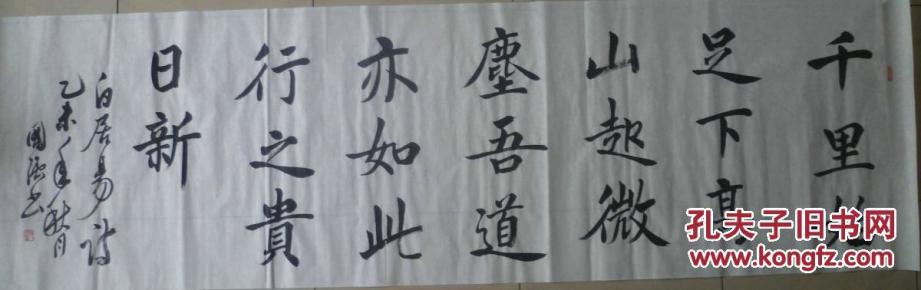 千里始
足下高
山起微
塵吾道
亦如此
行之貴
日新
白居易诗
乙未年秋月
國强书
孔夫子旧书网
www.kongfz.com